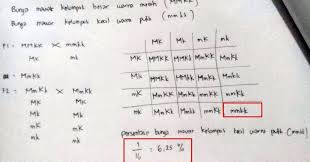 Bunga mawar kelopak besar warna merah (MMKK)
Bunga mawar kelopak kecil warna putih (mmkk)
P1 = MMKK × mmkk
MK mk
= MmKk
F2 = MmKk × MmKk
MK MK
Mk Mk
mK mK
mk mk
MK Mk mK mk
MK MMKK MMKk MmKK MmKk
Mk MMKk MMkk MmKk Mmkk
mK MmKK MmKk mmKK mmKk
mk MmKk Mmkk mmKk mmkk
persentase bunga mawar kelopak kecil warna putih (mmkk)
1/16 = 6,25 %